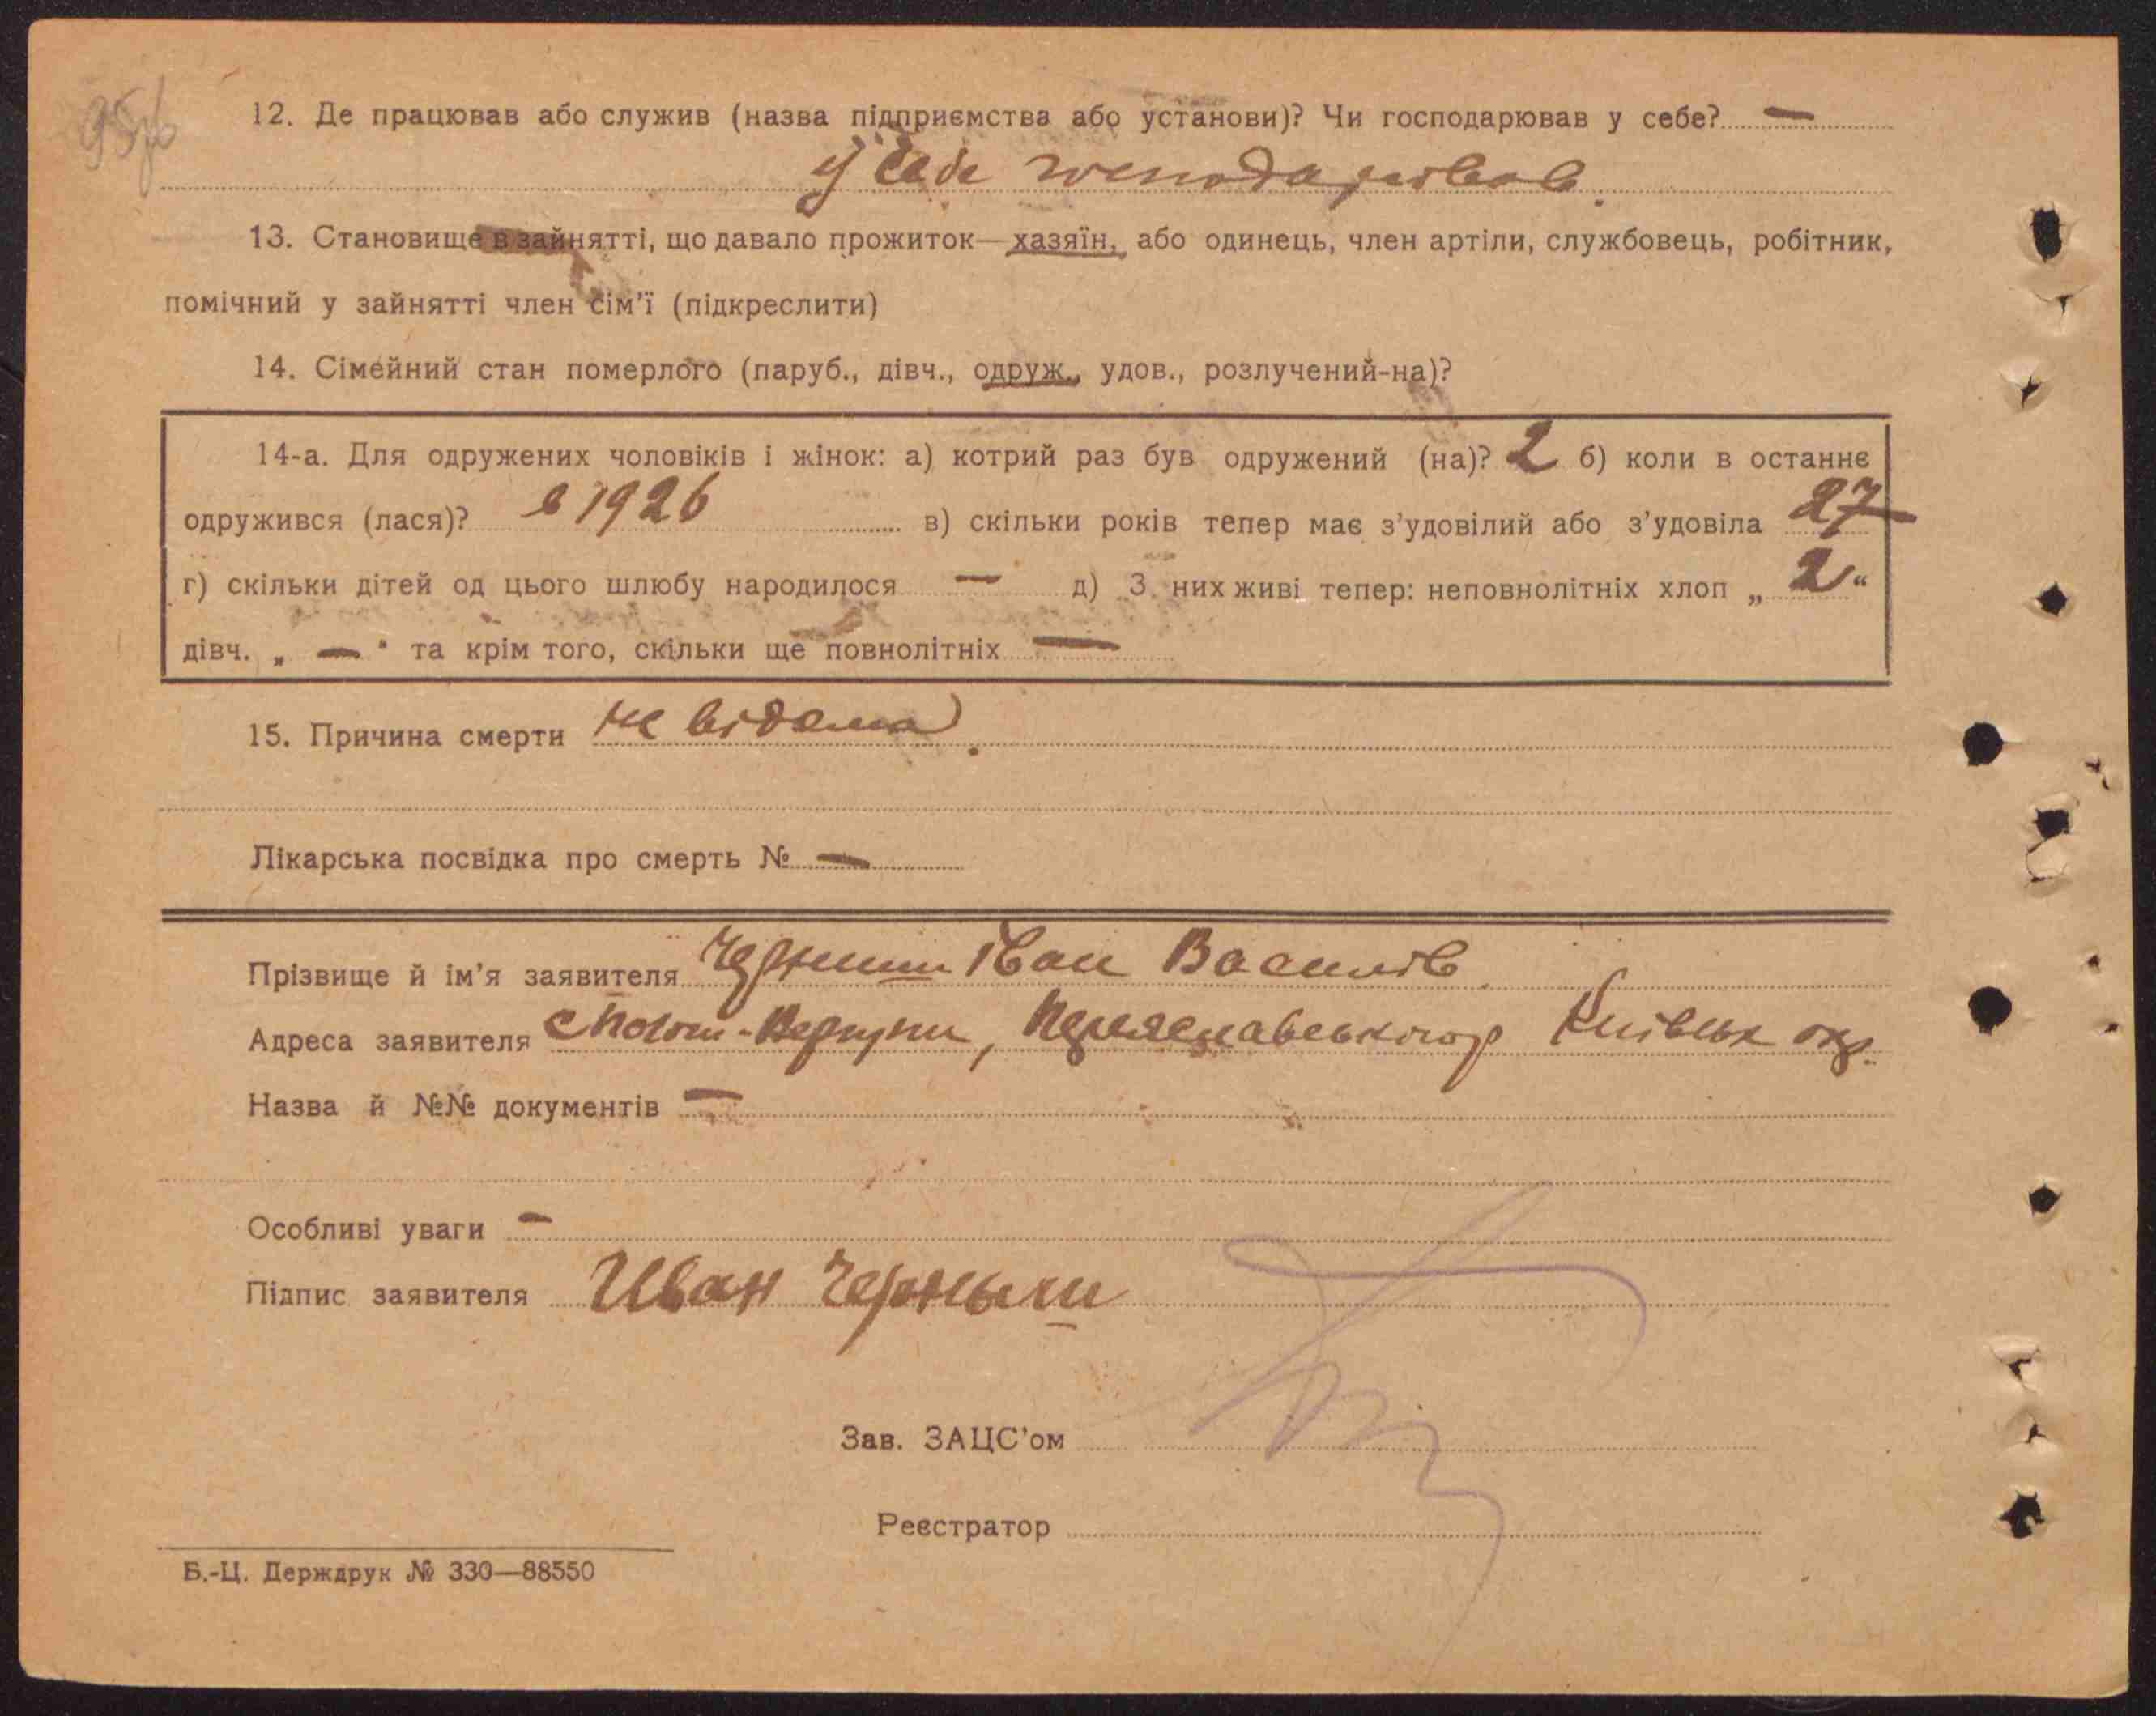 12. Де працював або служив (назва підприємства або установи)? Чи господарював у себе? —
у себе господарював.
13. Становище в зайнятті, що давало прожиток—хазяїн, або одинець, член артіли, службовець, робітник,
помічний у зайнятті член сім'ї (підкреслити)
14. Сімейний стан померлого (паруб., дівч., одруж., удов., розлучений-на)?
14-а. Для одружених чоловіків і жінок: а) котрий раз був одружений (на)? 2 б) коли в останнє
одружився (лася)? в 1926 в) скільки років тепер має з'удовілий або з'удовіла 27
г) скільки дітей од цього шлюбу народилося — д) З них живі тепер: неповнолітніх хлоп „ 2 "
дівч. „ — " та крім того, скільки ще повнолітніх —
15. Причина смерти не відома.
Лікарська посвідка про смерть № —
Прізвище й ім'я заявителя Іван Василів
Адреса заявителя Київськ окр.
Назва й №№ документів —
Особливі уваги —
Підпис заявителя Иван
Зав. ЗАЦС'ом
Реєстратор
Б.-Ц. Держдрук № 330—88550